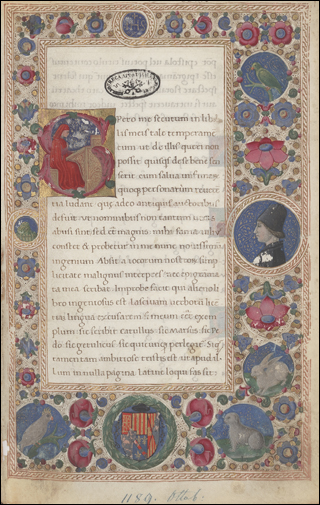 Spero me secutum in libel
lis meis tale temperamen
tum ut de illis queri non
possit quisquis de se bene sen
serit cum salua infimarum
quoque personarum reueren
tia ludant. quę adeo antiquis auctoribus
defuit ut nominibus non tantum ueris
abusi sint sed et magnis. mihi fama uilius
constet & probetur in me
ingenium. Absit a iocorum nostrorum sim
plicitate malignus interpres nec epigramma
ta mea scribat. Improbe facit qui in alieno li
bro ingeniosus est. Lasciuam uerborum
lingua excusarem si meum eēt exem
plum. sic scribit catullus. sic marsus. sic Pe
do. sic getulicus. sic quicunque perlegitur. Siquis
tamen tam ambitiose tristis est ut apud il
lum in nulla pagina latine loqui fas sit
1189. Ottob.